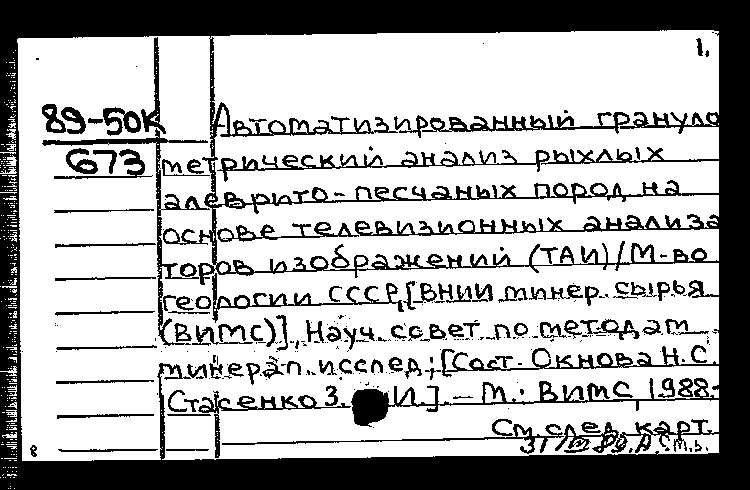 1.
89-50К Автоматизированный грануло
673 метрический анализ рыхлых
алеврито-песчаных пород на
основе телевизионных анализа
торов изображений (ТАИ)/М-во
геологии СССР, [ВНИИ минер. сырья
(ВИМС)], Науч. совет по методам
минерал. исслед.; [Сост. Окнова Н.С.
Стасенко З. И.]. – М.: ВИМС, 1988.-
См. след. карт.
8